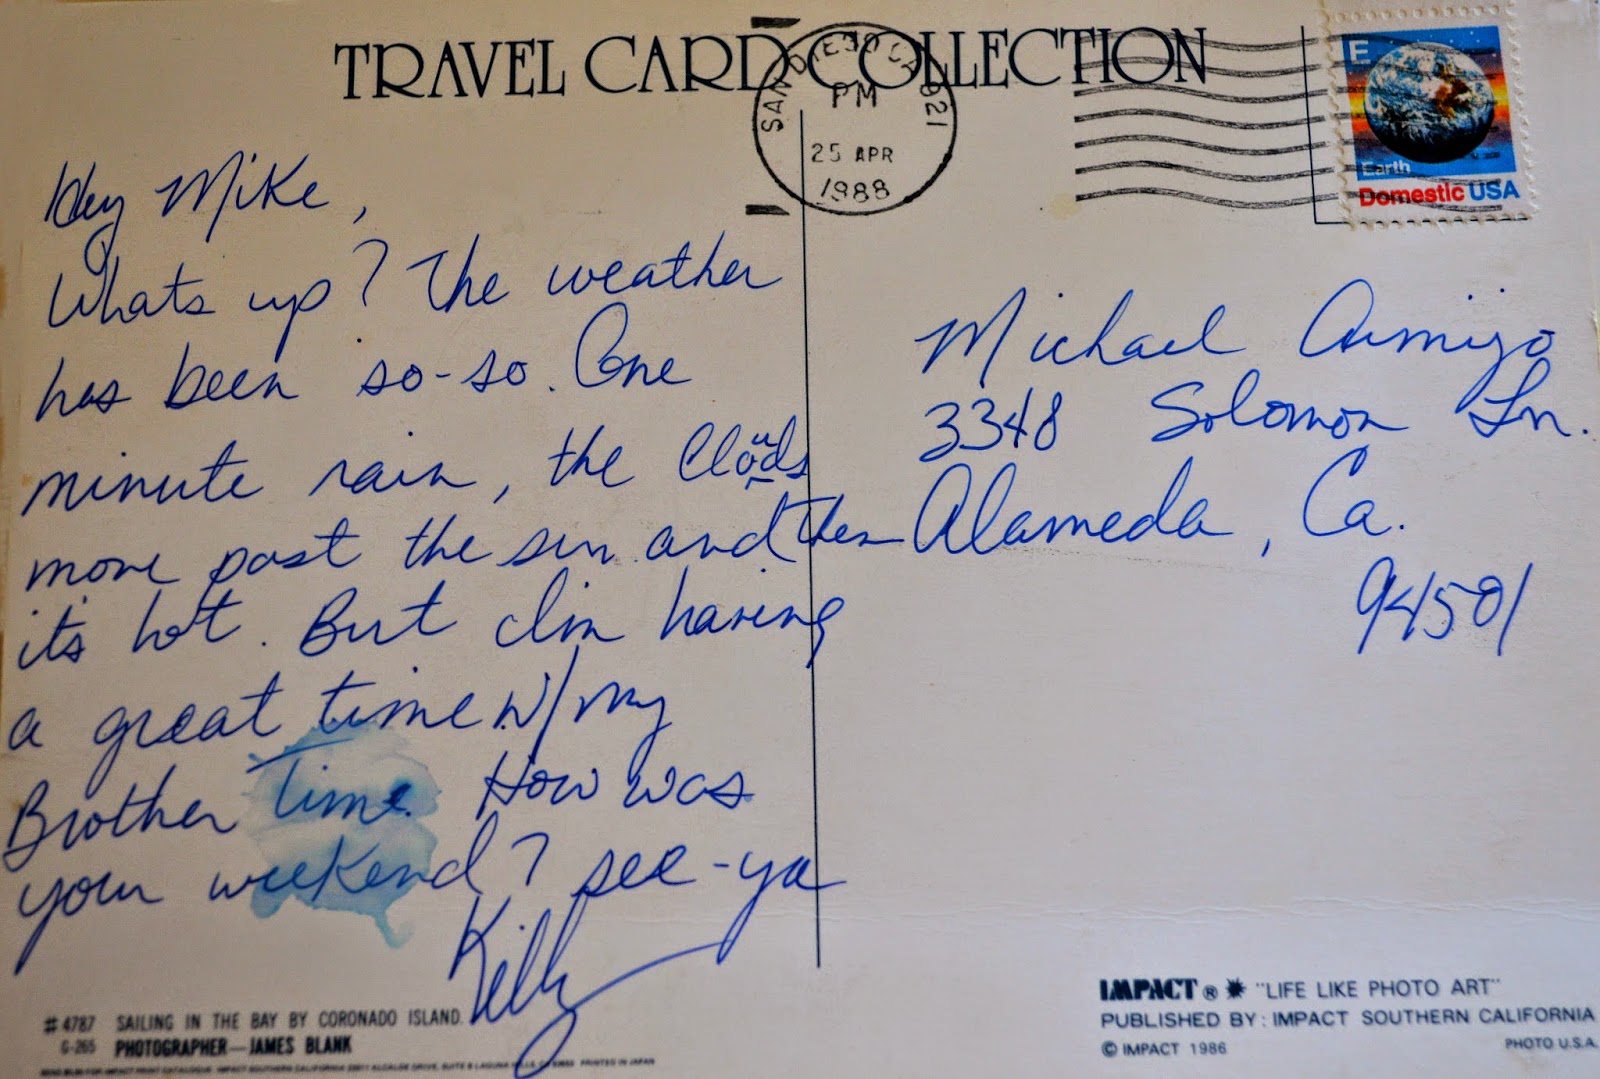 TRAVEL CARD COLLECTION
SAN DIEGO CA 921
PM
25 APR
1988
E
Earth
Domestic USA
Hey Mike,
Whats up? The weather
has been so-so. One
minute rain, the Clouds
move past the sun and then
it's hot. But I'm having
a great time w/my
Brother Time. How was
your weekend? see-ya
Kelly
Michael Armijo
3348 Solomon Ln.
Alameda, Ca.
94501
# 4787 SAILING IN THE BAY BY CORONADO ISLAND.
G-265 PHOTOGRAPHER—JAMES BLANK
PRINTED IN JAPAN
IMPACT ® "LIFE LIKE PHOTO ART"
PUBLISHED BY: IMPACT SOUTHERN CALIFORNIA
© IMPACT 1986
PHOTO U.S.A.